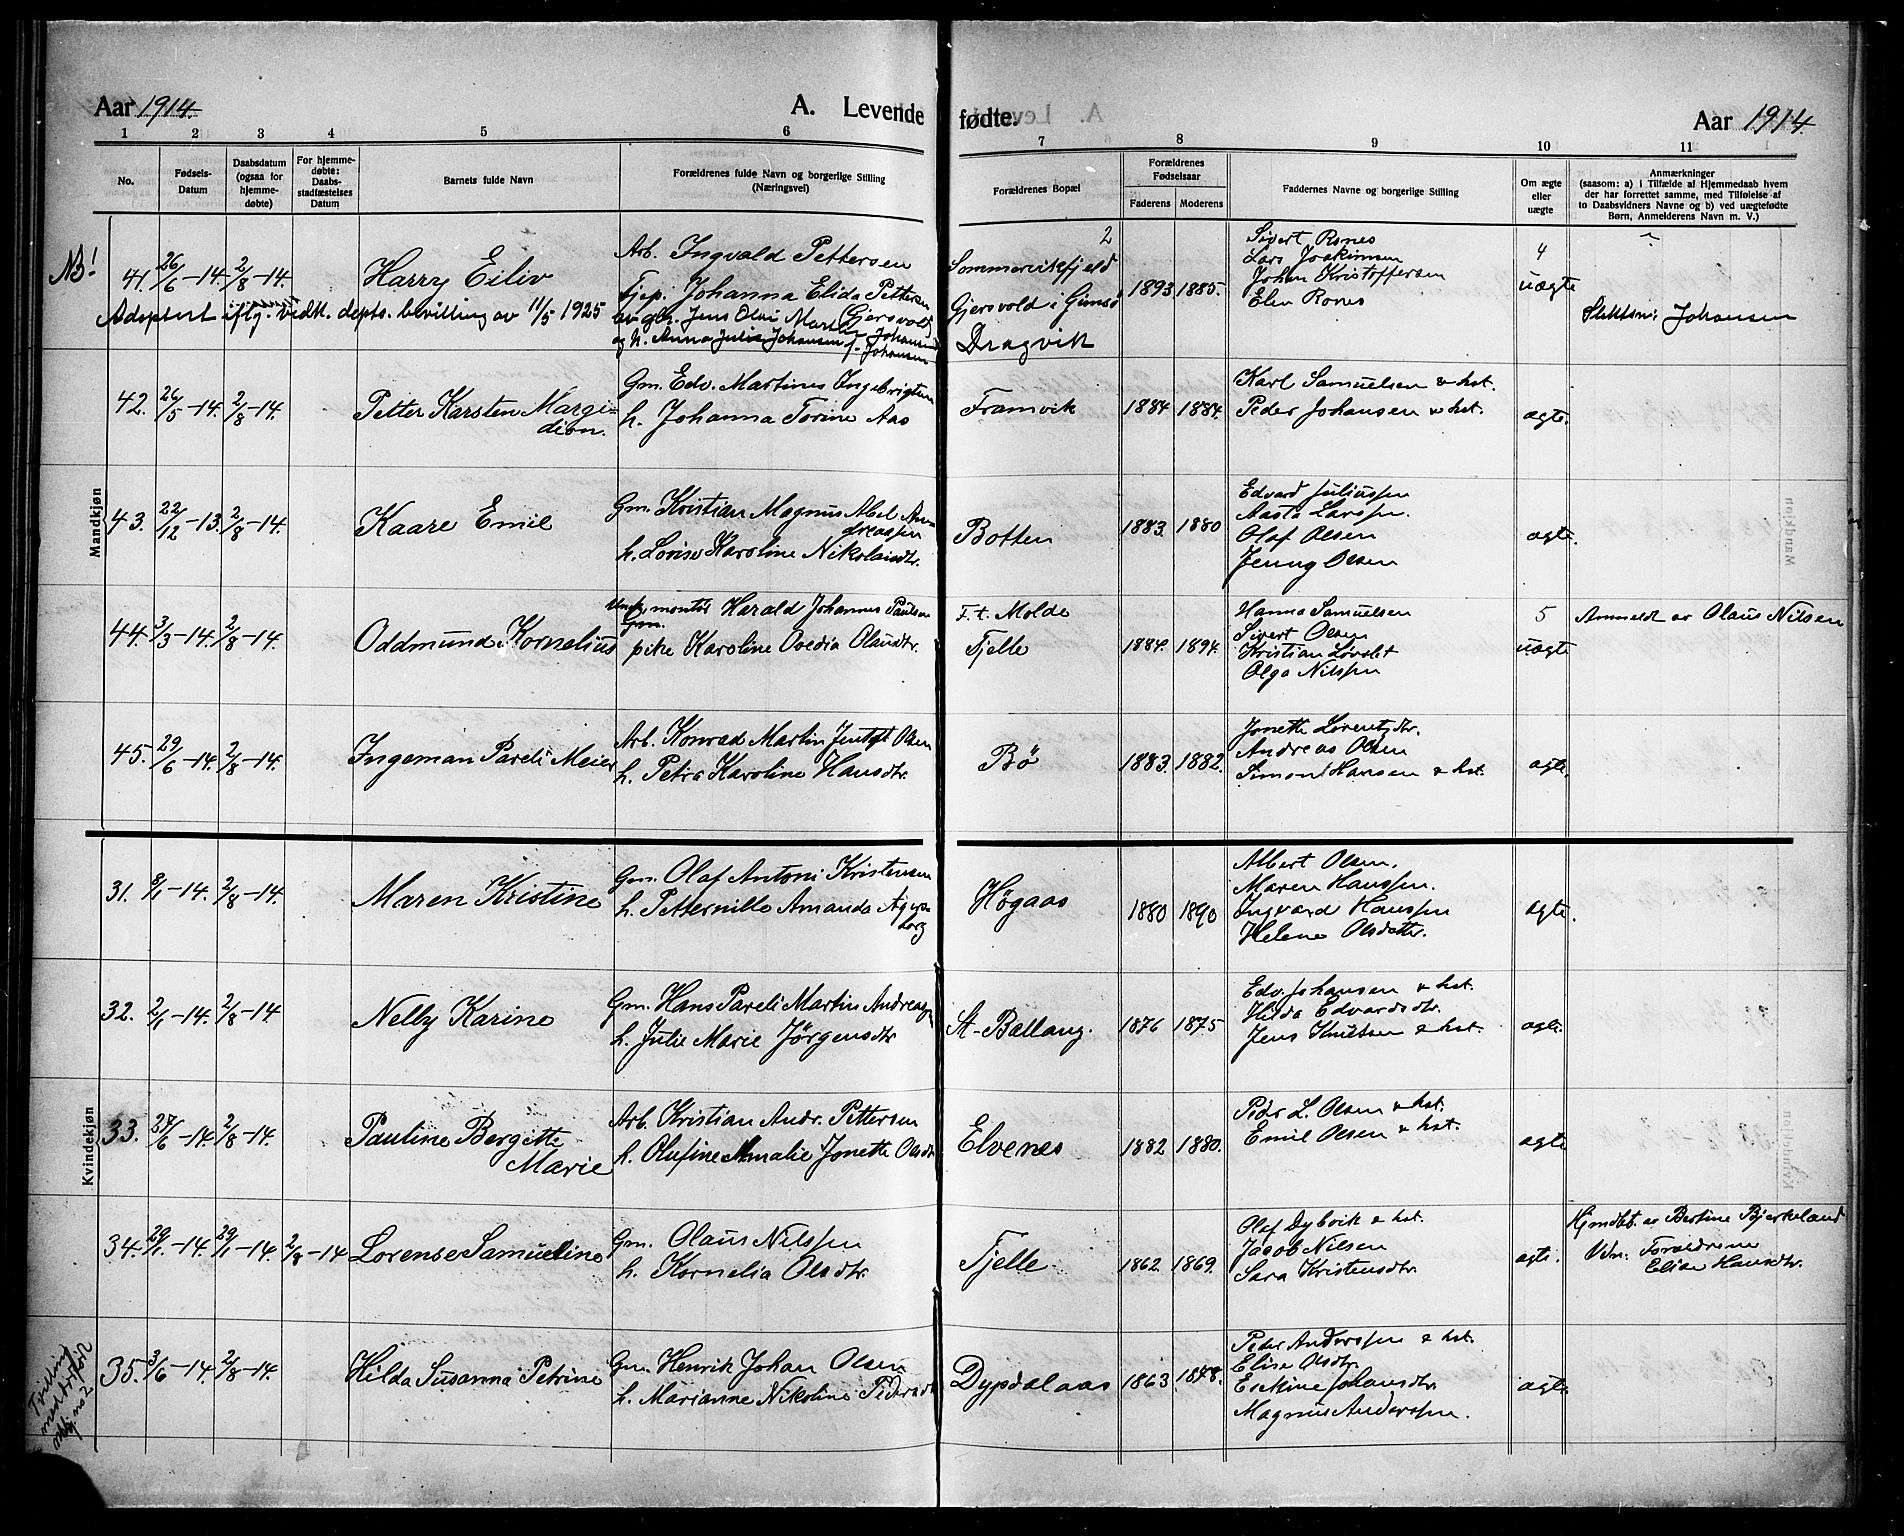 Aar 1914.
A. Levende fødte.
Aar 1914
1 2 3 4 5 6 7 8 9 10 11
No.
Fødsels-Datum
Daabsdatum (ogsaa for hjemme-døbte)
For hjemme-døbte: Daabs-stadfæstelses Datum
Barnets fulde Navn
Forældrenes fulde Navn og borgerlige Stilling (Næringsvei)
Forældrenes Bopæl
Forældrenes Fødselsaar
Faderens Moderens
Faddernes Navne og borgerlige Stilling
Om ægte eller uægte
Anmærkninger
(saasom: a) i Tilfælde af Hjemmedaab hvem
der har forrettet samme, med Tilføielse af
to Daabsvidners Navne og b) ved uægtefødte
Børn, Anmelderens Navn m. V.)
Mandkjøn
NB!
41. 26/6-14. 2/8-14.
Harry Eiliv
Arb. Ingvald Pettersen
Tjep. Johanna Elida Pettersen
Gjersvold
2
Sommervikfjeld
Gjersvold i Gimsø
1893 1885.
Sivert Rones
Lars Joakimsen
Johan Kristoffersen
Elen Rones
4
uægte
Adoptert iflg. vedk. depts. bevilling av 11/5 1925
av gm. Jens Olai Martin Johansen
og h. Anna Julie Johansen f. Johansen
Dragvik
Slektsn: Johansen
42. 26/5-14. 2/8-14.
Petter Karsten Margi-
dion.
Gm. Edv. Martines Ingebrigtsen
h. Johanna Torine Aas
Framvik
1884 1884.
Karl Samuelsen & hst.
Peder Johansen & hst.
ægte.
43. 22/12-13. 2/8-14.
Kaare Emil
Gm. Kristian Magnus Abel An-
dreassen
h. Lovise Karoline Nikolaidtr.
Botten
1883. 1880
Edvard Juliussen
Aasta Larssen.
Olaf Olsen
Jenny Olsen
ægte.
44. 3/3-14. 2/8-14.
Oddmund Kornelius
Ungk. montør Harald Johannes Paulsen
Gm.
pike Karoline Ovedia Olausdtr.
F.t. Molde
Tjelle
1884. 1894.
Hanna Samuelsen
Sivert Olsen
Kristian Løvslet
Olga Nilssen
5
uægte
Anmeldt av Olaus Nilsen
45. 29/6-14. 2/8-14.
Ingeman Pareli Meier
Arb. Konrad Martin Jentoft Olsen
h. Petra Karoline Hansdtr.
Bø
1883. 1882.
Jonette Lorentzdtr.
Andreas Olsen
Simon Hansen & hst.
ægte.
Kvindekjøn
31. 8/1-14. 2/8-14.
Maren Kristine
Gm. Olaf Antoni Kristensen
h. Petternille Amanda Agers-
borg
Høgaas
1880 1890
Albert Olsen.
Maren Hanssen.
Ingvard Hanssen
Helene Olsdatter.
ægte.
32. 2/1-14. 2/8-14.
Nelly Karine
Gm. Hans Pareli Martin Andreassen
h. Julie Marie Jørgensdtr
St-Ballang.
1876 1875
Edv. Johansen & hst.
Hilda Edvardsdtr.
Jens Knutsen & hst.
ægte.
33. 27/6-14. 2/8-14.
Pauline Bergitte
Marie
Arb. Kristian Andr. Pettersen
h. Olufine Amalie Jonette Olsdtr
Elvenes
1882 1880.
Peder L. Olsen & hst.
Emil Olsen & hst.
ægte
34. 29/1-14. 29/1-14. 2/8-14
Lorense Samueline
Gm. Olaus Nilssen
h. Kornelia Olsdtr.
Tjelle
1862. 1869.
Olaf Dybvik & hst.
Jacob Nilsen
Sara Kristensdtr.
ægte.
Hjmdbt. av Bertine Bjerkeland
Vdn: Forældrene
Elise Hansdtr.
Tvilling
med dødfødt
35. 3/6-14. 2/8-14.
Hilda Susanna Petrine
Gm. Henrik Johan Olsen
h. Marianne Nikoline Pedersdtr
Dypdalaas
1863 1878.
Peder Anderssen & hst.
Elise Olsdtr.
Erikine Johansdtr.
Magnus Anderssen.
ægte